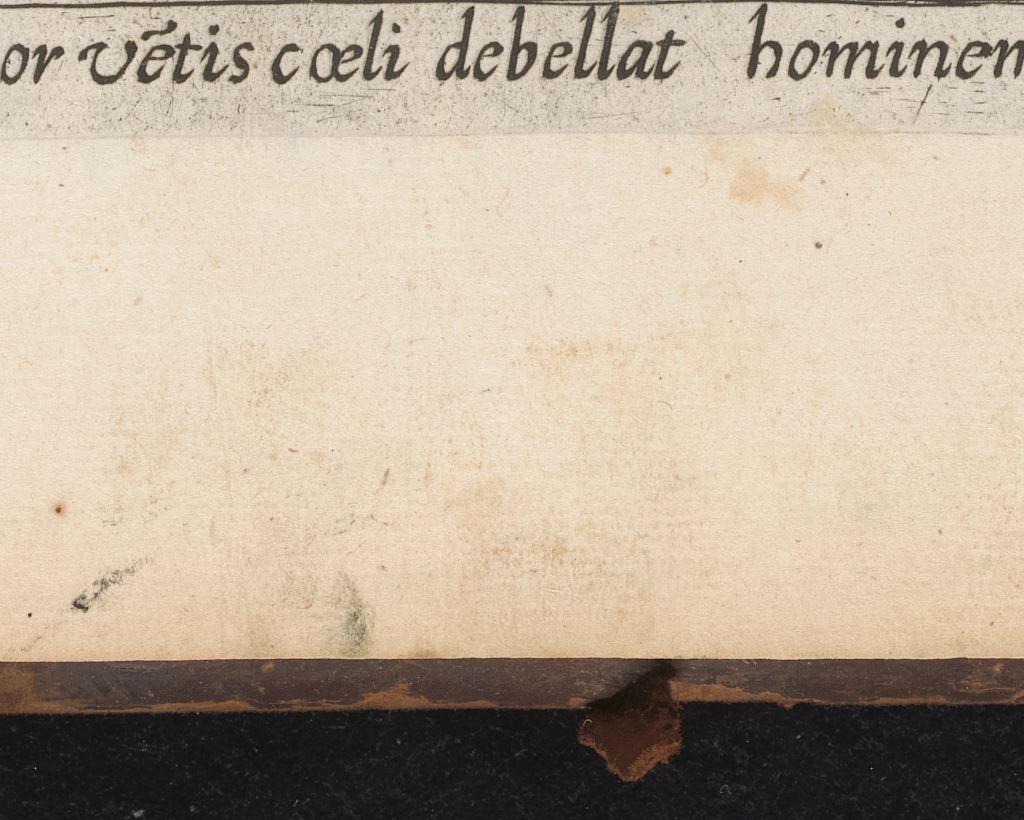 or vẽtis cœli debellat hominem